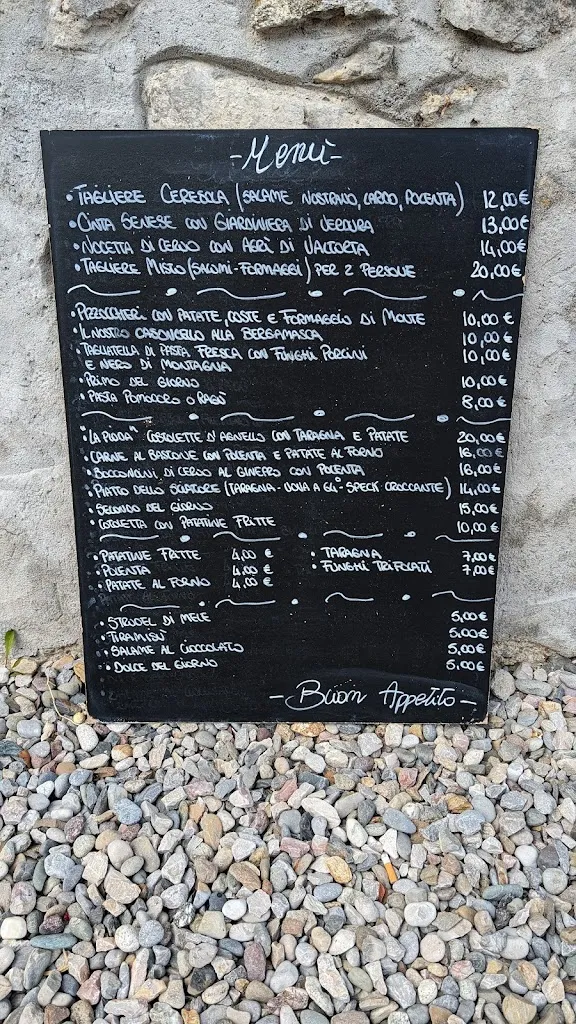 -Menù-
• TAGLIERE CERESOLA (SALAME NOSTRANO, LARDO, POLENTA) 12,00€
• CINTA SENESE CON GIARDINIERA DI VERDURA 13,00€
• NOCETTA DI CERVO CON AGRÌ DI VALTORTA 14,00€
• TAGLIERE MISTO (SALUMI-FORMAGGI) PER 2 PERSONE 20,00€
• PIZZOCCHERI CON PATATE, COSTE E FORMAGGIO DI MONTE 10,00€
• IL NOSTRO CASONCELLO ALLA BERGAMASCA 10,00€
• TAGLIATELLA DI PASTA FRESCA CON FUNGHI PORCINI 10,00€
E NERO DI MONTAGNA
• PRIMO DEL GIORNO 10,00€
• PASTA POMODORO O RAGÙ 8,00€
• "LA PIODA" COSTOLETTE D'AGNELLO CON TARAGNA E PATATE 20,00€
• CARNE AL BASTONE CON POLENTA E PATATE AL FORNO 18,00€
• BOCCONCINI DI CERVO AL GINEPRO CON POLENTA 16,00€
• PIATTO DELLO SCIATORE (TARAGNA - UOVA A 64° - SPECK CROCCANTE) 14,00€
• SECONDO DEL GIORNO 15,00€
• COTOLETTA CON PATATINE FRITTE 10,00€
• PATATINE FRITTE 4,00 € • TARAGNA 7,00€
• POLENTA 4,00 € • FUNGHI TRIFOLATI 7,00€
• PATATE AL FORNO 4,00 €
• STRUDEL DI MELE 5,00€
• TIRAMISÙ 5,00€
• SALAME AL CIOCCOLATO 5,00€
• DOLCE DEL GIORNO 5,00€
- Buon Appetito -